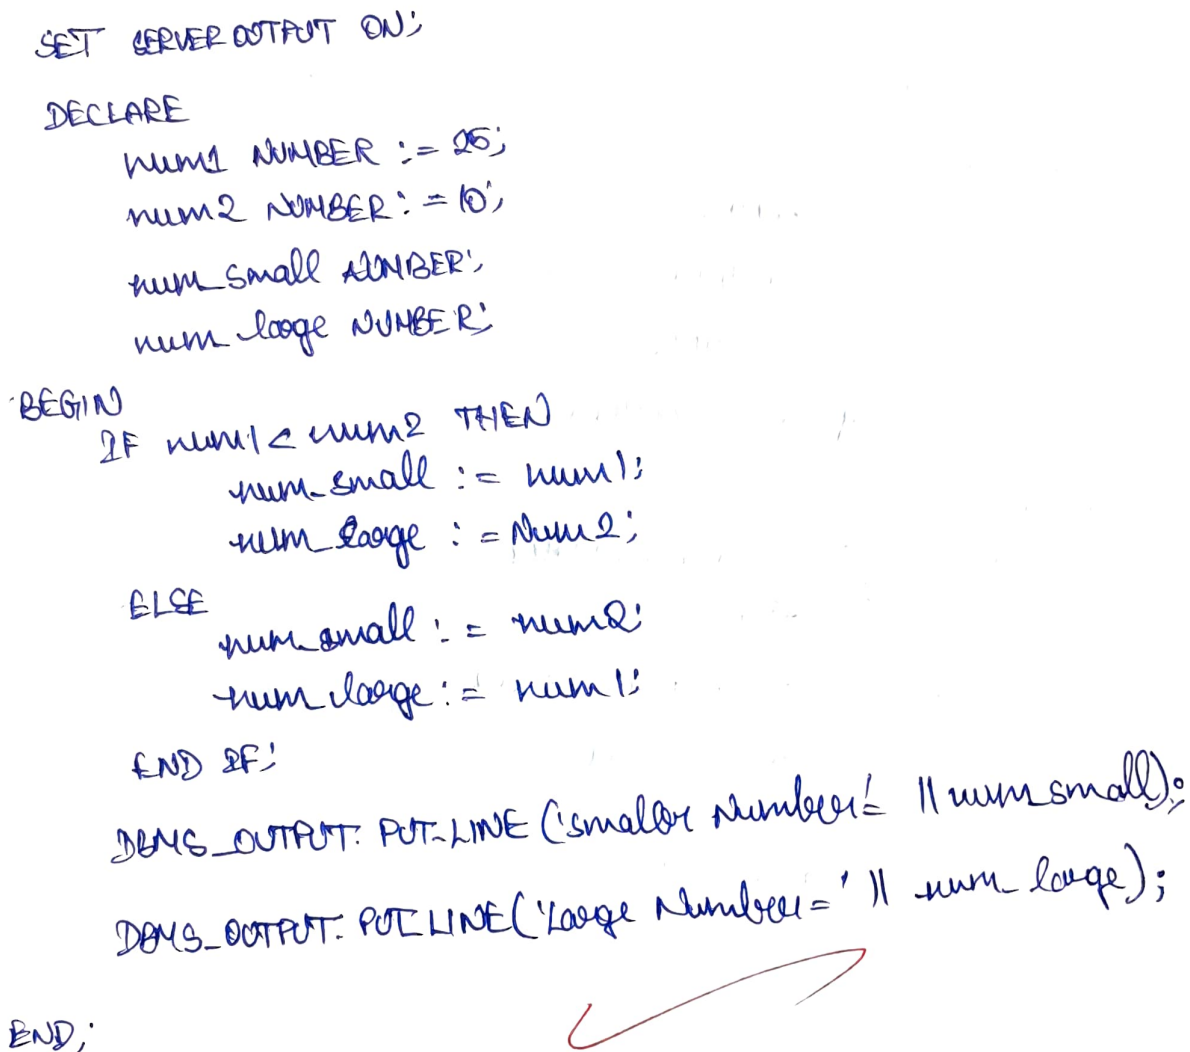 SET SERVEROUTPUT ON;
DECLARE
num1 NUMBER := 25;
num2 NUMBER := 10;
num_small NUMBER;
num_large NUMBER;
BEGIN
IF num1 < num2 THEN
num_small := num1;
num_large := Num2;
ELSE
num_small := num2;
num_large := num1;
END IF;
DBMS_OUTPUT.PUT_LINE('smaller Number=' || num_small);
DBMS_OUTPUT.PUT_LINE('Large Number=' || num_large);
END;